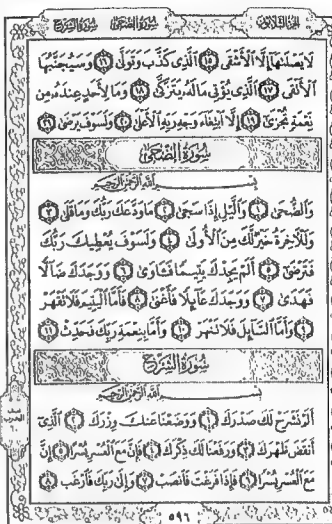 سورة الشرح سورة الضحى الجزء الثلاثون
لَا يَصْلَىٰهَآ إِلَّا ٱلْأَشْقَى ١٥ ٱلَّذِى كَذَّبَ وَتَوَلَّىٰ ١٦ وَسَيُجَنَّبُهَا
ٱلْأَتْقَى ١٧ ٱلَّذِى يُؤْتِى مَالَهُۥ يَتَزَكَّىٰ ١٨ وَمَا لِأَحَدٍ عِندَهُۥ مِن
نِّعْمَةٍ تُجْزَىٰٓ ١٩ إِلَّا ٱبْتِغَآءَ وَجْهِ رَبِّهِ ٱلْأَعْلَىٰ ٢٠ وَلَسَوْفَ يَرْضَىٰ ٢١
سُورَةُ الضُّحَىٰ
بِسْمِ ٱللَّهِ ٱلرَّحْمَٰنِ ٱلرَّحِيمِ
وَٱلضُّحَىٰ ١ وَٱلَّيْلِ إِذَا سَجَىٰ ٢ مَا وَدَّعَكَ رَبُّكَ وَمَا قَلَىٰ ٣
وَلَلْءَاخِرَةُ خَيْرٌ لَّكَ مِنَ ٱلْأُولَىٰ ٤ وَلَسَوْفَ يُعْطِيكَ رَبُّكَ
فَتَرْضَىٰٓ ٥ أَلَمْ يَجِدْكَ يَتِيمًا فَـَٔاوَىٰ ٦ وَوَجَدَكَ ضَآلًّا
فَهَدَىٰ ٧ وَوَجَدَكَ عَآئِلًا فَأَغْنَىٰ ٨ فَأَمَّا ٱلْيَتِيمَ فَلَا تَقْهَرْ
٩ وَأَمَّا ٱلسَّآئِلَ فَلَا تَنْهَرْ ١٠ وَأَمَّا بِنِعْمَةِ رَبِّكَ فَحَدِّثْ ١١
سُورَةُ الشَّرْحِ
بِسْمِ ٱللَّهِ ٱلرَّحْمَٰنِ ٱلرَّحِيمِ
أَلَمْ نَشْرَحْ لَكَ صَدْرَكَ ١ وَوَضَعْنَا عَنكَ وِزْرَكَ ٢ ٱلَّذِىٓ
أَنقَضَ ظَهْرَكَ ٣ وَرَفَعْنَا لَكَ ذِكْرَكَ ٤ فَإِنَّ مَعَ ٱلْعُسْرِ يُسْرًا ٥ إِنَّ
مَعَ ٱلْعُسْرِ يُسْرًا ٦ فَإِذَا فَرَغْتَ فَٱنصَبْ ٧ وَإِلَىٰ رَبِّكَ فَٱرْغَب ٨
٥٩٦